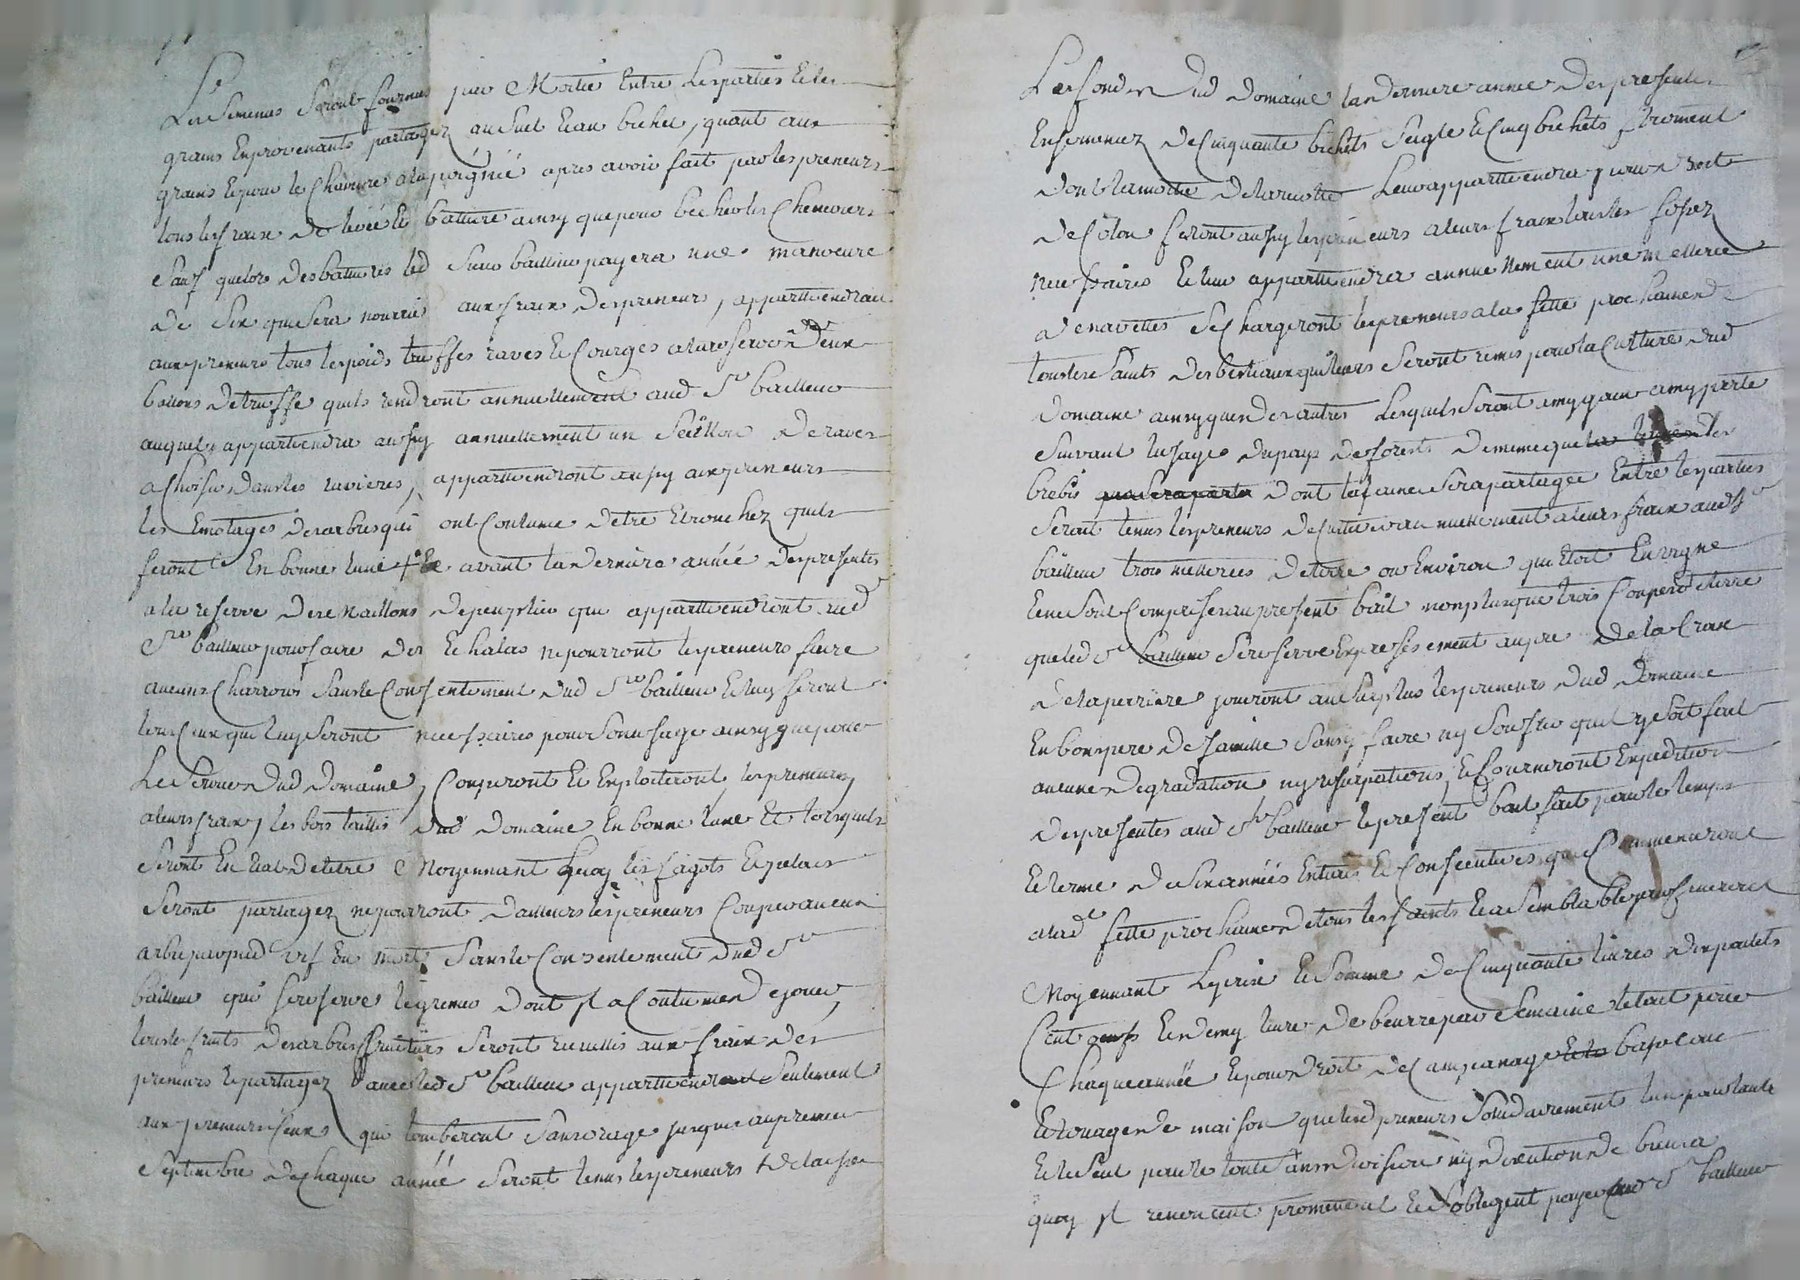 Les Semences Seront fournies par Moitié Entre Lesparties Et les
grains Enprovenants partagez au Suel Et au bichet, quant aux
grains Et pour le Chanvre ala poignié apres avoir fait par les preneurs
tous les fraix de levée Et batture ainsy que pour becher les Cheneviers
Sauf que lors des battures led Sieur bailleur payera une manoeuvre
de Six qui Sera nourrie aux fraix des preneurs, appartiendront
aux preneurs tous les poids truffes raves Et Courges ala reserve de deux
ballons de truffe quils rendront annuellement aud Sr bailleur
auquel appartiendra aussy annuellement un Seillon de raves
a Choisir dans les ravieres, appartiendront aussy aux preneurs
les Emotages des arbres qui ont Coutume detre Etronchez quils
feront En bonne lune + avant la derniere année des presentes
ala reserve des Maillons de peuplier qui appartiendront aud
Sr bailleur pour faire des Echalas ne pourront les preneurs faire
aucuns Charrois Sans le Consentement dud Sr bailleur Et luy feront
tous Ceux qui luy Seront necessaires pour Son usage ainsy que pour
Le Service dud domaine, Couperont Et Exploiteront les preneurs
aleurs fraix, les bois taillis dud domaine En bonne lune Et lorsquils
Seront En Etat de letre Moyennant Quoy les fagots Et
Seront partagez ne pourront dailleurs les preneurs Couper aucun
arbre par pied vif ou mort Sans le Consentement dud Sr
bailleur qui Se reserve le grenier dont Il a Coutume de jouir,
tous les fruits des arbres fruitiers Seront recueillis aux fraix des
preneurs Et partagez avec led Sr bailleur appartiendront Seulement
aux preneurs Ceux qui tomberont Sans orage jusques au premier
Septembre de Chaque année Seront tenus les preneurs de laisser
Les fonds dud domaine la derniere année des presentes
Ensemencez de Cinquante bichets Seigle Et Cinq bichets froment
dont la moitié de la recolte Leur appartiendra pour droit
de Colon feront aussy les preneurs aleurs fraix tous les fossez
necessaires Et leur appartiendra annuellement une metteree
de navettes Se Chargeront les preneurs ala fette prochaine de
tous les Saints des bestiaux qui leurs Seront remis pour la Culture dud
domaine ainsy que des autres Lesquels Seront amy gain amy perte
Suivant lusage du pays de forests de meme que les
brebis dont la laine Sera partagée Entre les parties
Seront tenus les preneurs de Cultiver annuellement aleurs fraix aud Sr
bailleur trois metterees de terre ou Environ qui Etoit En vigne
Et ne Sont Comprises au present bail non plus que trois Coupées de terre
que led Sr bailleur Se reserve Expressement aupre de la Croix
de la perriere jouiront au Surplus les preneurs dud domaine
En bons pere de famille Sans y faire ny Souffrir quil y Soit fait
aucune degradation ny usurpations, Et fourniront Expedition
des presentes aud Sr bailleur le present bail fait pour le temps
Et terme de Six années Entieres Et Consecutives qui Commenceront
alad fette prochaine de tous les Saints Et a Semblable jour finiront
Moyennant Le prix Et Somme de Cinquante livres
Cent oeufs Et demy livre de beurre par Semaine le tout pour
Chaque année Et pour droit de basse cour
Et de maison que lesd preneurs Solidairement lun pour lautre
Et le Seul pour le tout Sans division ny discution de biens a
quoy Il renoncent promettent Et Soblegent payer aud Sr bailleur